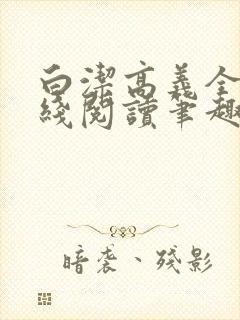 白潔高義全
綫閱讀筆趣
暗袭、殘影